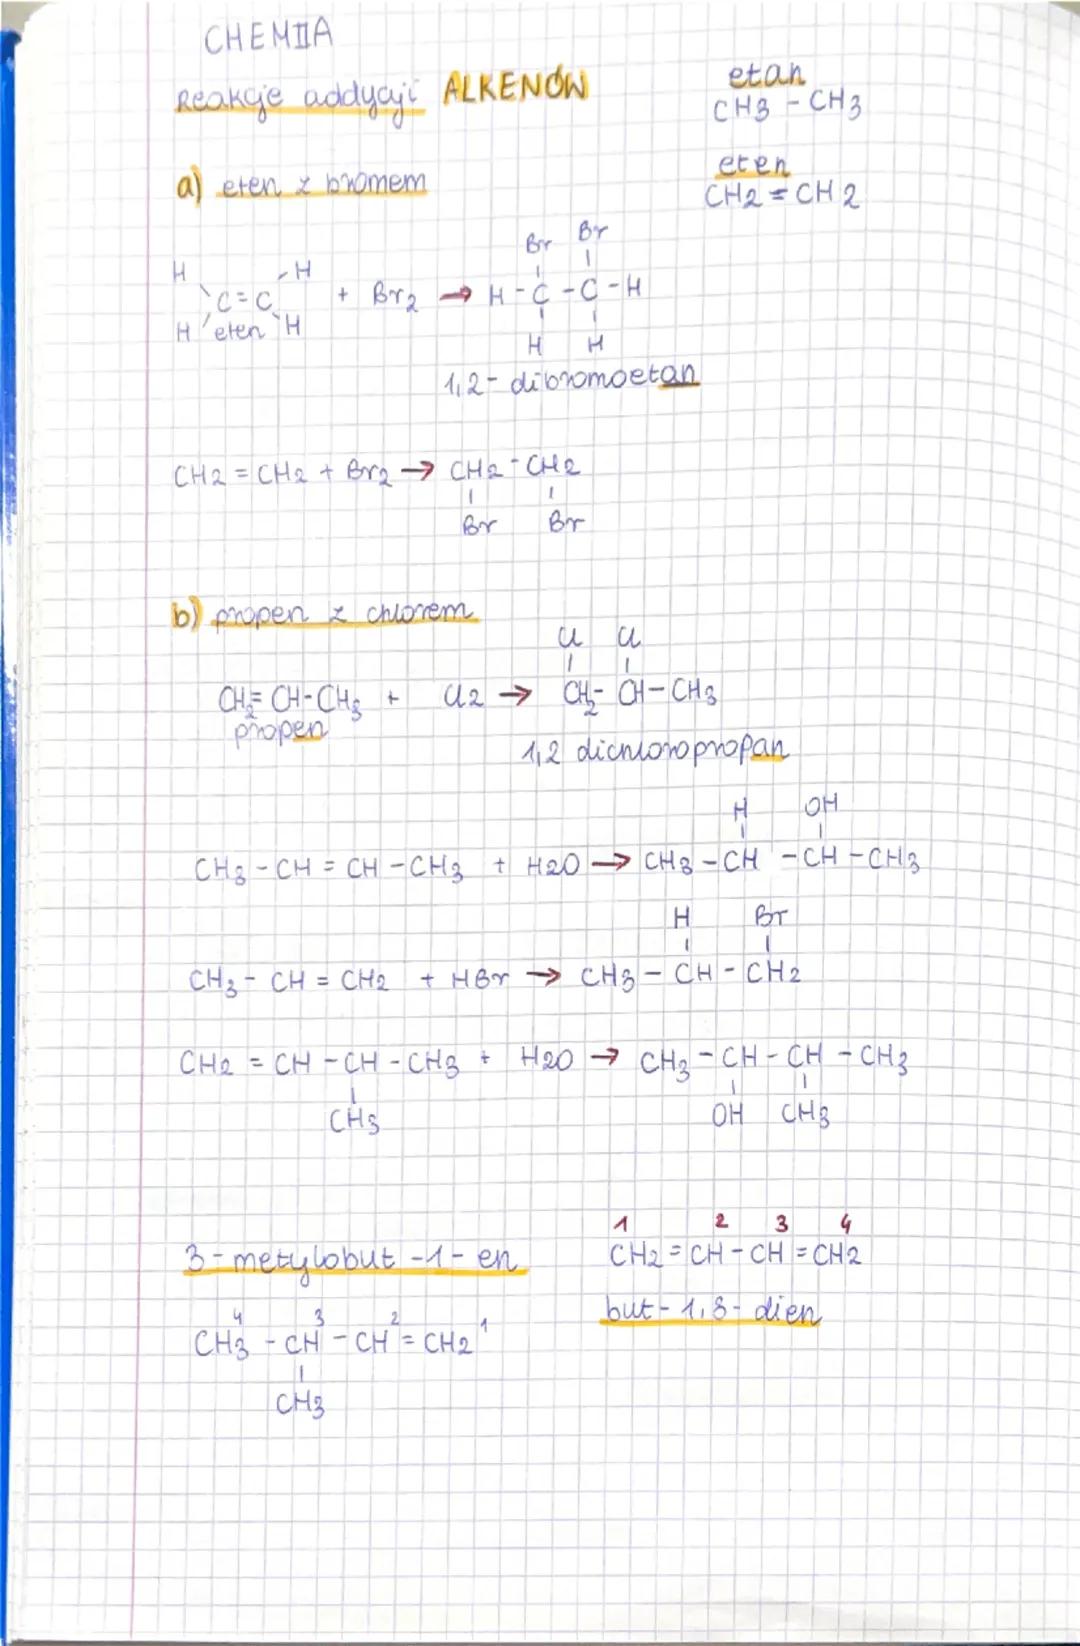 CHEMIA
Reakcje addycji ALKENÓW
etan
CH3 - CH3
a) eten z bromem
eten
CH2 = CH2
Br Br
H H
C=C + Br2 → H-C-C-H
H eten H
H H
1,2- dibromoetan
CH2 = CH2 + Br2 → CH2 - CH2
Br Br
b) propen z chlorem
Cl Cl
CH2= CH-CH3 + Cl2 → CH2- CH-CH3
propen
1,2 dichloropropan
H OH
CH3 - CH = CH - CH3 + H2O → CH3 - CH - CH - CH3
H Br
CH3 - CH = CH2 + HBr → CH3 - CH - CH2
CH2 = CH - CH - CH3 + H2O → CH3 - CH - CH - CH3
CH3
OH CH3
3-metylobut -1- en
4 3 2 1
CH3 - CH - CH = CH2
CH3
1 2 3 4
CH2 = CH - CH = CH2
but- 1,3- dien